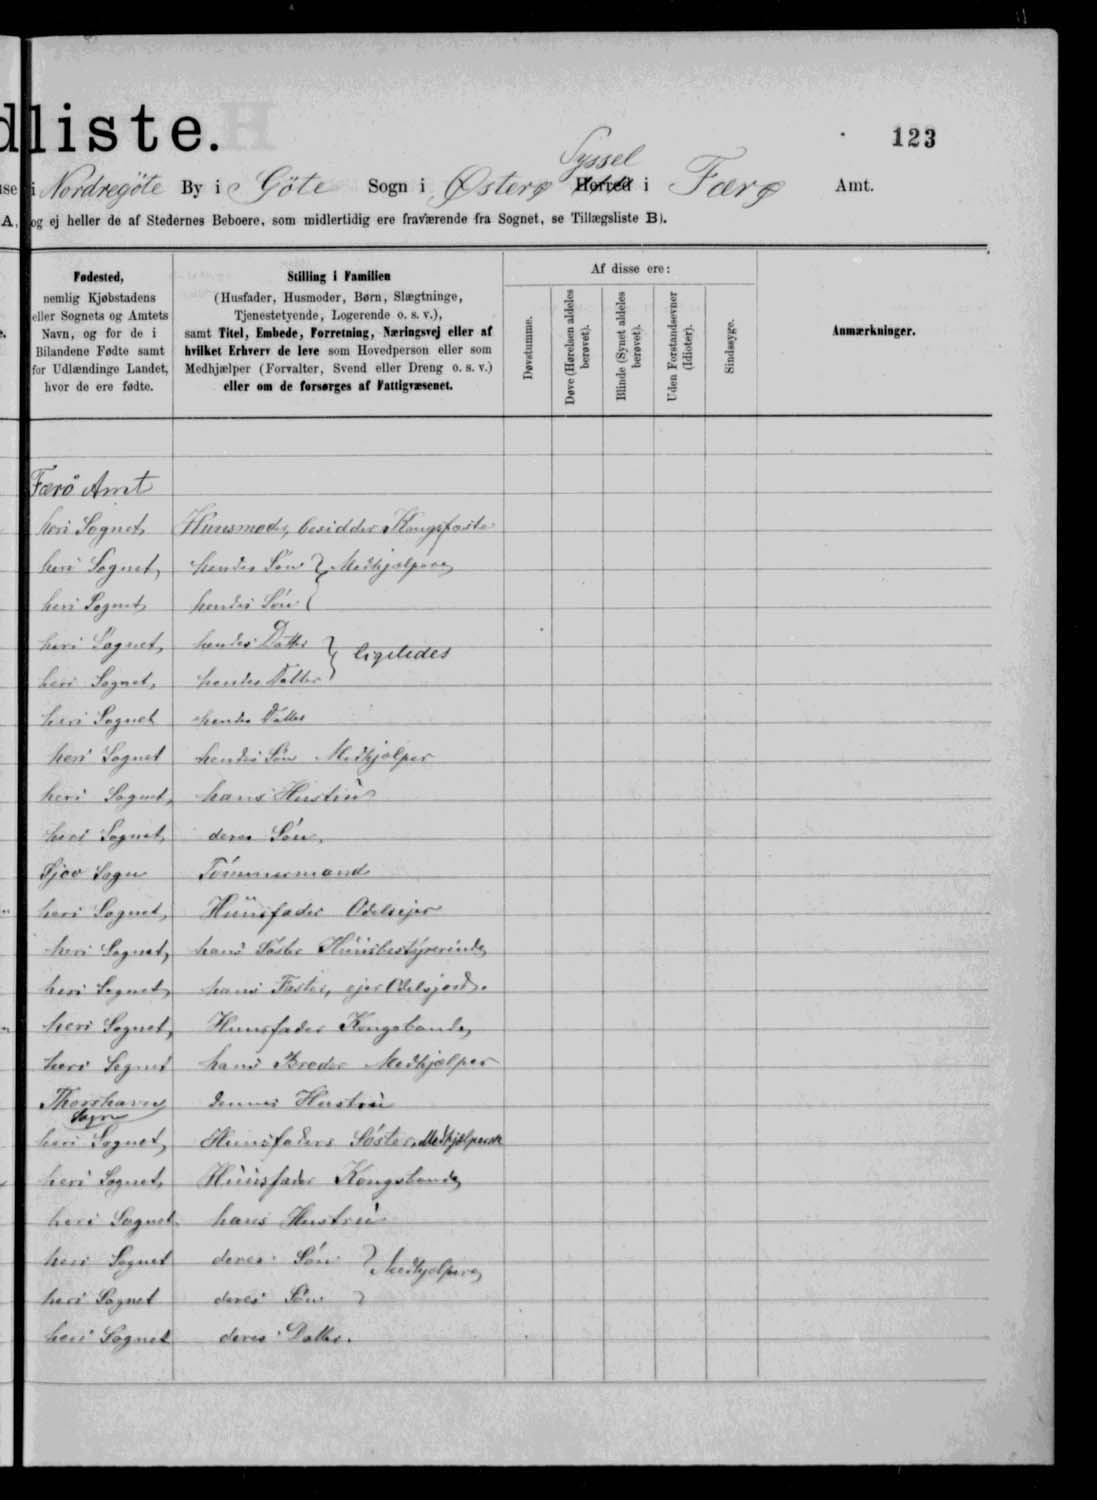 dliste.
123
Syssel
i Nordregöte By i Göte Sogn i Østerø Herred i Færø Amt.
A, og ej heller de af Stedernes Beboere, som midlertidig ere fraværende fra Sognet, se Tillægsliste B).
Fødested,
nemlig Kjøbstadens
eller Sognets og Amtets
Navn, og for de i
Bilandene Fødte samt
for Udlændinge Landet,
hvor de ere fødte.
Stilling i Familien
(Husfader, Husmoder, Børn, Slægtninge,
Tjenestetyende, Logerende o. s. v.),
samt Titel, Embede, Forretning, Næringsvej eller af
hvilket Erhverv de leve som Hovedperson eller som
Medhjælper (Forvalter, Svend eller Dreng o. s. v.)
eller om de forsørges af Fattigvæsenet.
Af disse ere:
Døvstumme.
Døve (Hørelsen aldeles
berøvet).
Blinde (Synet aldeles
berøvet).
Uden Forstandsevner
(Idioter).
Sindssyge.
Anmærkninger.
Færö Amt
heri Sognet, Huusmoder, besidder Kongsfæste
heri Sognet, hendes Sön } Medhjælpere
heri Sognet hendes Sön
heri Sognet, hendes Datter } ligeledes
heri Sognet, hendes Datter
heri Sognet hendes Datter
heri Sognet hendes Sön Medhjælper
heri Sognet, hans Hustru
heri Sognet, deres Sön,
Sjov Sogn Tömmermand
heri Sognet, Huusfader Odelsejer
heri Sognet, hans Söster Huusbestyrerinde
heri Sognet, hans Faster, ejer Odelsjord.
heri Sognet, Huusfader Kongsbonde,
heri Sognet hans Broder Medhjælper
Thorshavn dennes Hustru
Sogn
heri Sognet, Huusfaders Söster, Medhjælpersk
heri Sognet, Huusfader Kongsbonde,
heri Sognet hans Hustru
heri Sognet deres Sön } Medhjælpere,
heri Sognet deres Sön
heri Sognet deres Datter.